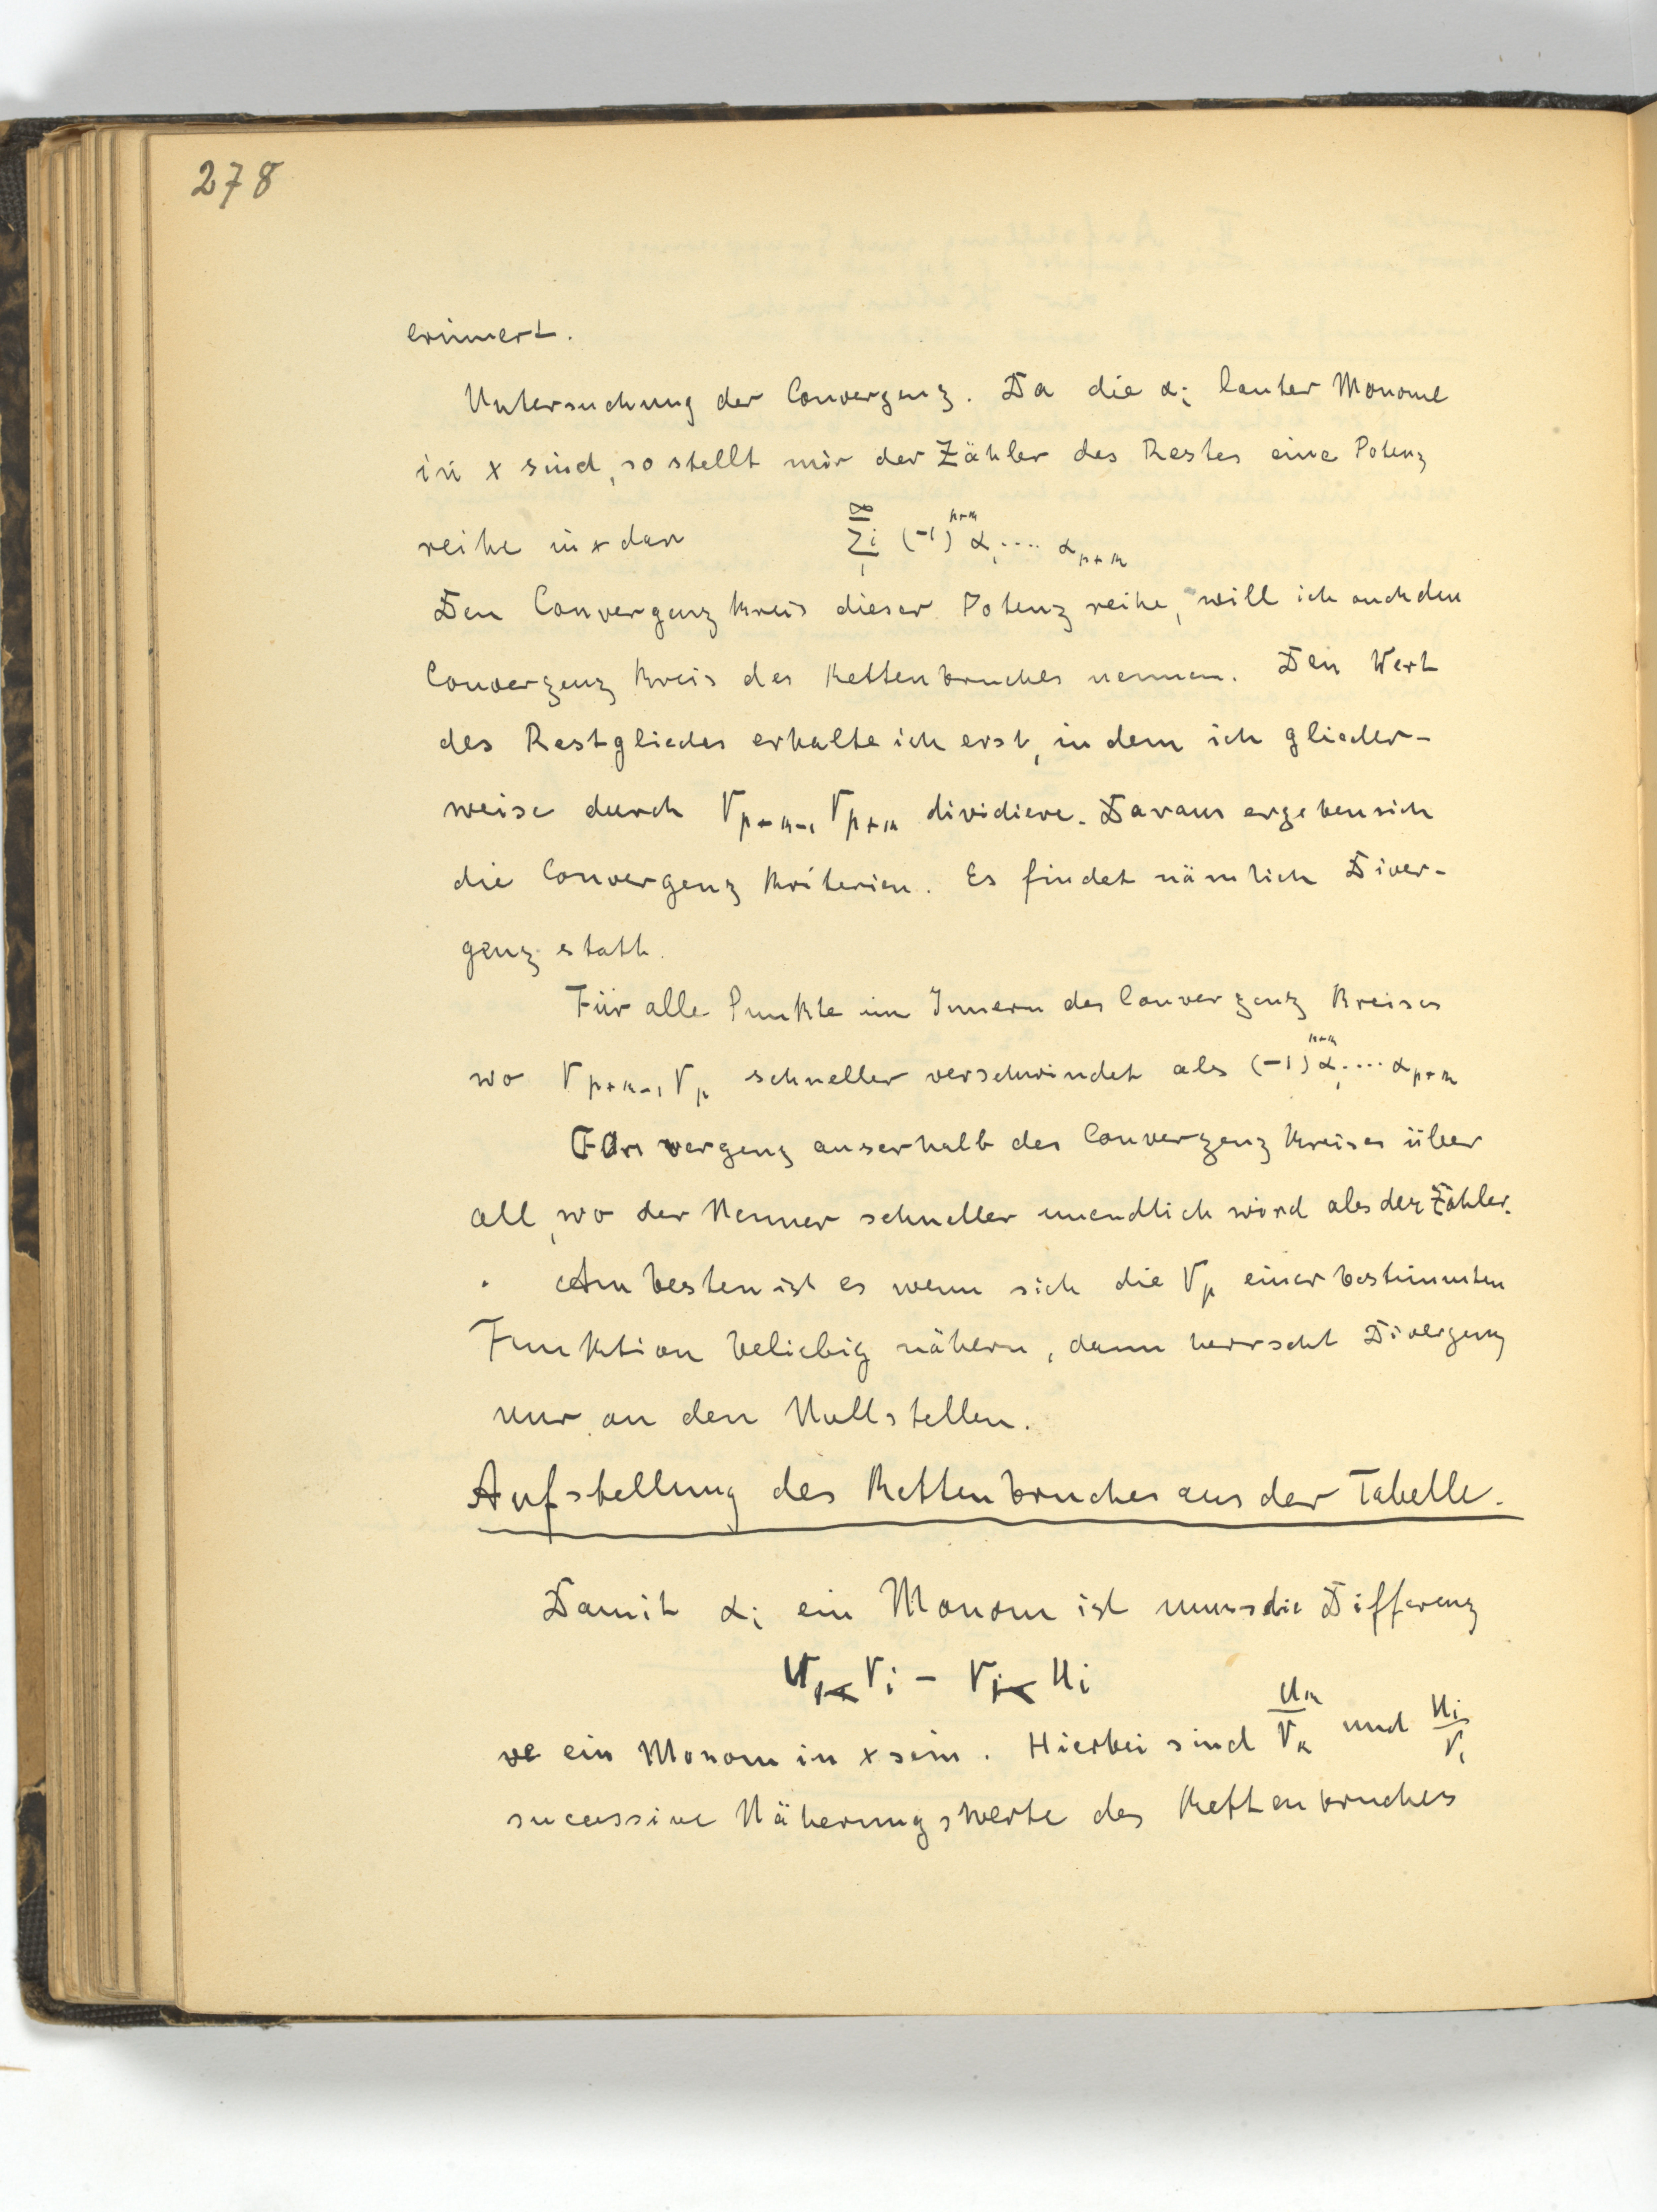 278
erinnert.
Untersuchung der Convergenz. Da die α_i lauter Monome
in x sind, so stellt mir der Zähler des Restes eine Potenz
reihe in x dar ∑_i (-1)^{p+n} α_1 .... α_{p+n}
Den Convergenzkreis dieser Potenzreihe, will ich auch den
Convergenzkreis des Kettenbruches nennen. Den Wert
des Restgliedes erhalte ich erst, indem ich glieder-
weise durch V_{p+n-1} V_{p+n} dividiere. Daraus ergeben sich
die Convergenz Kriterien. Es findet nämlich Diver-
genz statt.
Für alle Punkte im Innern des Convergenz Kreises
wo V_{p+n-1} V_p schneller verschwindet als (-1)^{p+n} α_1 .... α_{p+n}
vergenz auserhalb des Convergenz Kreises über
all, wo der Nenner schneller unendlich wird als der Zähler.
Am besten ist es wenn sich die V_p einer bestimmten
Funktion beliebig nähern, dann herrscht Divergenz
nur an den Nullstellen.
Aufstellung des Kettenbruches aus der Tabelle.
Damit α_i ein Monom ist muss die Differenz
U_k V_i - V_k U_i
ein Monom in x sein. Hierbei sind U_k/V_k und U_i/V_i
sucessive Näherungswerte des Kettenbruches